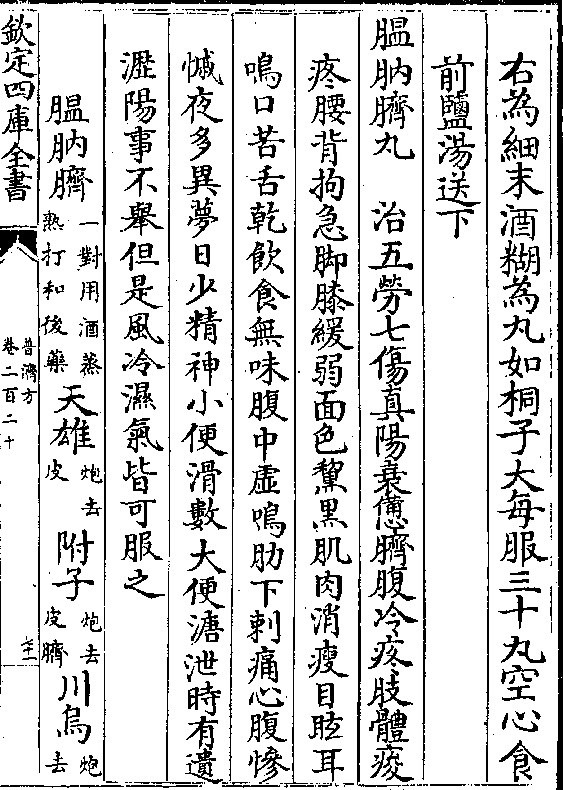 右為細末酒糊為丸如桐子大每服三十丸空心食
前鹽湯送下
膃肭臍丸　治五勞七傷真陽衰憊臍腹冷疼肢體痠
疼腰背拘急脚膝緩弱面色黧黑肌肉消瘦目眩耳
鳴口苦舌乾飲食無味腹中虛鳴肋下刺痛心腹慘
慽夜多異夢日少精神小便滑數大便溏泄時有遺
瀝陽事不舉但是風冷濕氣皆可服之
膃肭臍一對用酒蒸熟打和後藥　天雄炮去皮　附子炮去皮臍　川烏炮去
欽定四庫全書
普濟方
卷二百二十